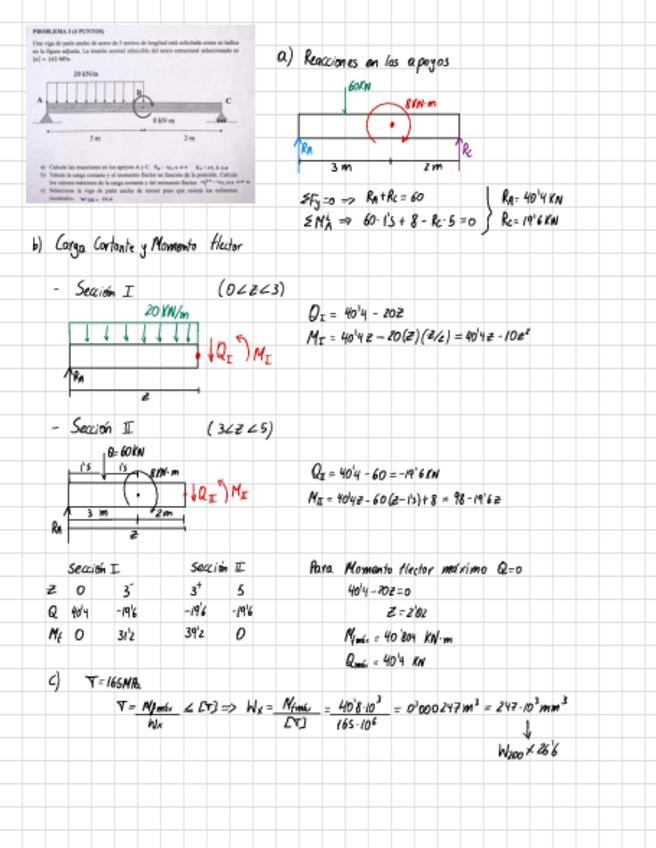 PROBLEMA 3 (4 PUNTOS)
Una viga de patín ancho de acero de 5 metros de longitud está solicitada como se indica
en la figura adjunta. La tensión normal admisible del acero estructural seleccionado es
[σ] = 165 MPa.
20 kN/m
A
B
C
8 kN·m
3 m
2 m
a) Calcule las reacciones en los apoyos A y C.
b) Tabule la carga cortante y el momento flector en función de la posición. Calcule
los valores máximos de la carga cortante y del momento flector.
c) Seleccione la viga de patín ancho de menor peso que resista los esfuerzos
a) Reacciones en los apoyos
60KN
8KN·m
RA
RC
3 m
2 m
ΣFy=0 => RA+RC=60
RA=40'4 KN
ΣMA => 60·1'5 + 8 - RC·5=0
RC=19'6 KN
b) Carga Cortante y Momento flector
- Sección I (0<z<3)
20 KN/m
QI MI
RA
z
QI = 40'4 - 20z
MI = 40'4z - 20(z)(z/2) = 40'4z - 10z²
- Sección II (3<z<5)
Q=60KN
1'5 1'5 8KN·m
QII MII
3 m 2m
RA
z
QII = 40'4 - 60 = -19'6 KN
MII = 40'4z - 60(z-1'5) + 8 = 98 - 19'6z
Sección I Sección II
z 0 3⁻ 3⁺ 5
Q 40'4 -19'6 -19'6 -19'6
Mf 0 31'2 39'2 0
Para Momento flector máximo Q=0
40'4 - 20z=0
z=2'02
Mfmáx = 40'804 KN·m
Qmáx = 40'4 KN
c) σ=165MPa
σ = Mfmáx/Wx ≤ [σ] => Wx = Mfmáx/[σ] = 40'8·10³/165·10⁶ = 0'000247m³ = 247·10³mm³
↓
W200 x 26'6